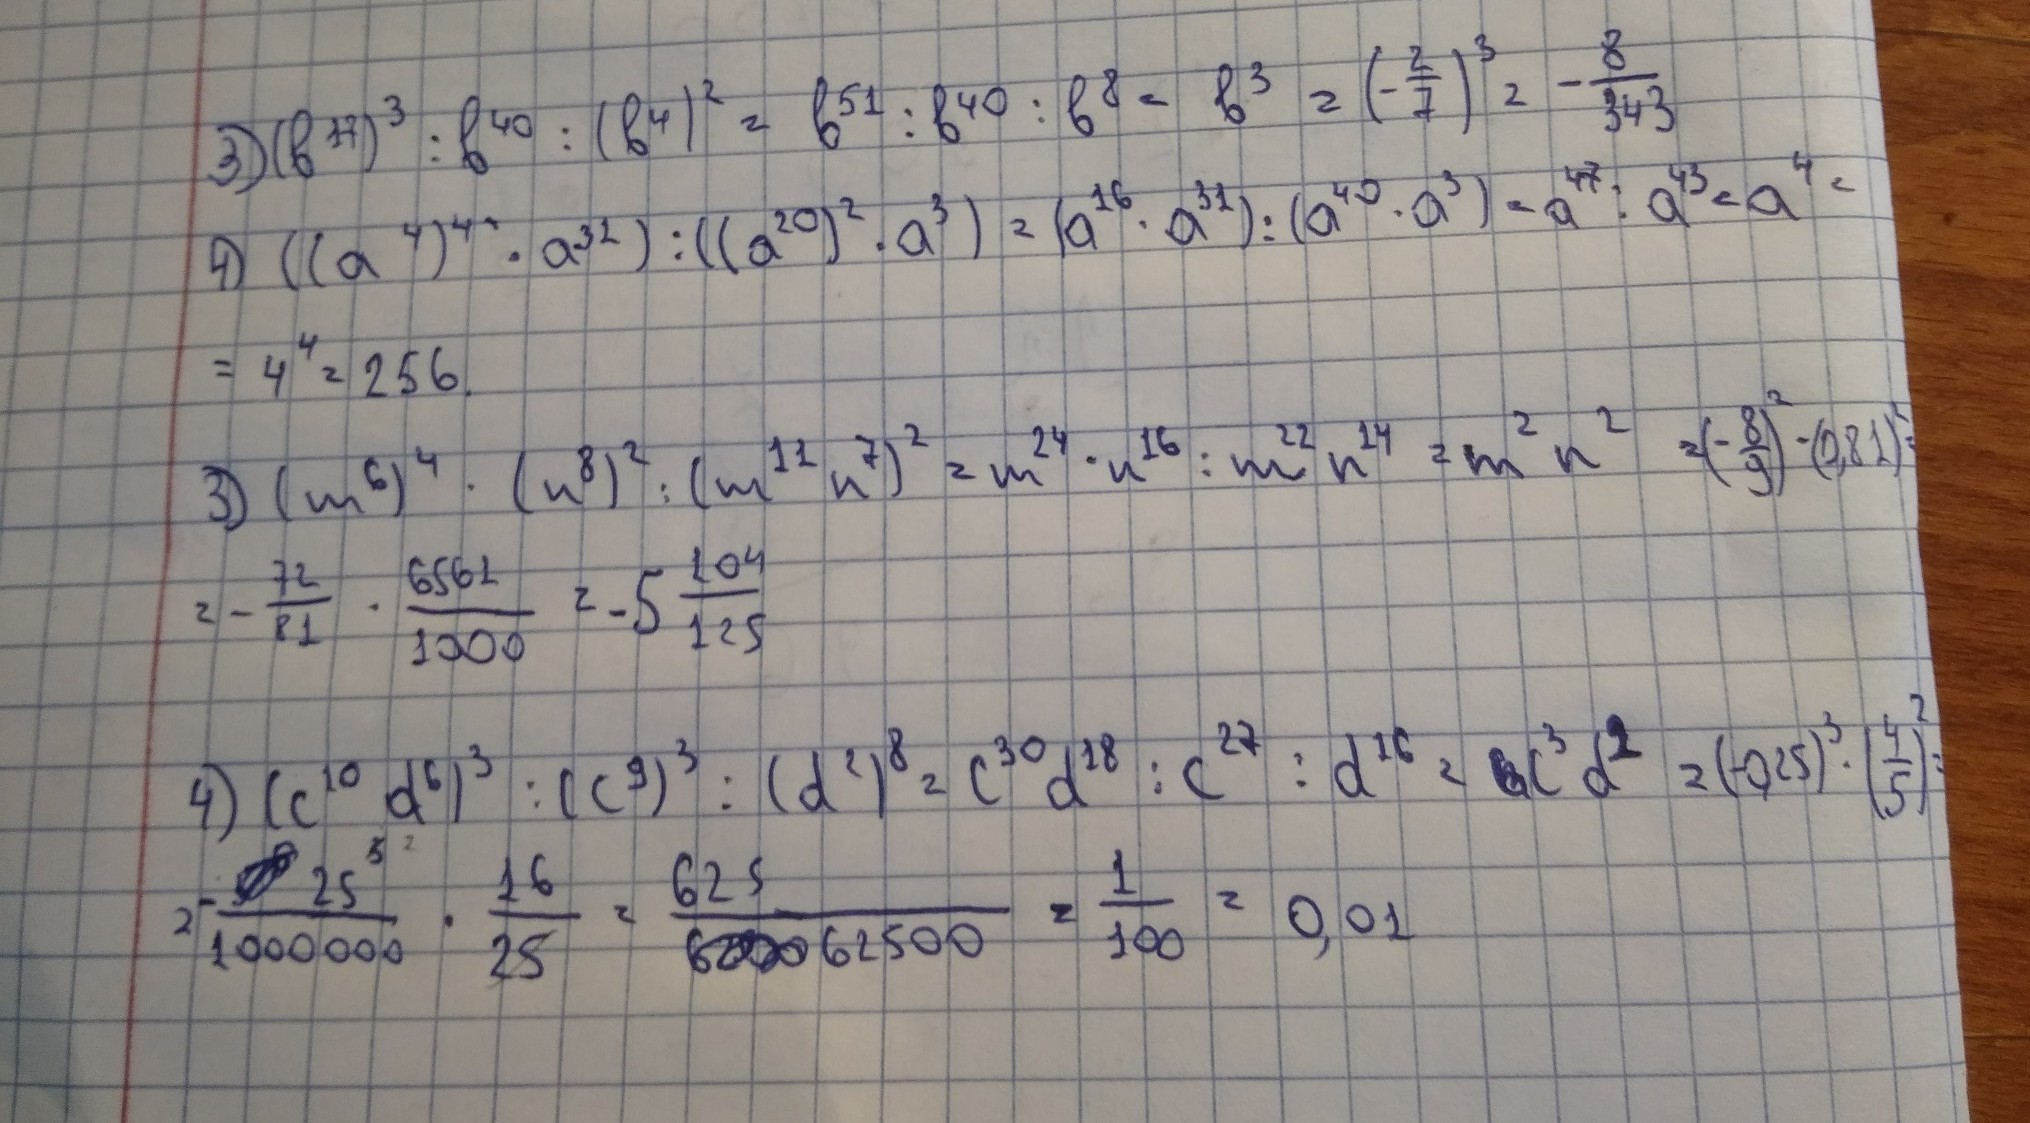 3) (b¹⁷)³ : b⁴⁰ : (b⁴)² = b⁵¹ : b⁴⁰ : b⁸ = b³ = (-2/7)³ = -8/343
4) ((a⁴)⁴ · a³¹) : ((a²⁰)² · a³) = (a¹⁶ · a³¹) : (a⁴⁰ · a³) = a⁴⁷ : a⁴³ = a⁴ =
= 4⁴ = 256.
3) (m⁶)⁴ · (n⁸)² : (m¹¹ n⁷)² = m²⁴ · n¹⁶ : m²² n¹⁴ = m² n² = (-8/9)² · (0,81)² =
= -72/81 · 6561/1000 = -5 104/125
4) (c¹⁰ d⁶)³ : (c⁹)³ : (d²)⁸ = c³⁰ d¹⁸ : c²⁷ : d¹⁶ = c³ d² = (-0,25)³ · (4/5)² =
= - 25³/1000000 · 16/25 = 625/62500 = 1/100 = 0,01